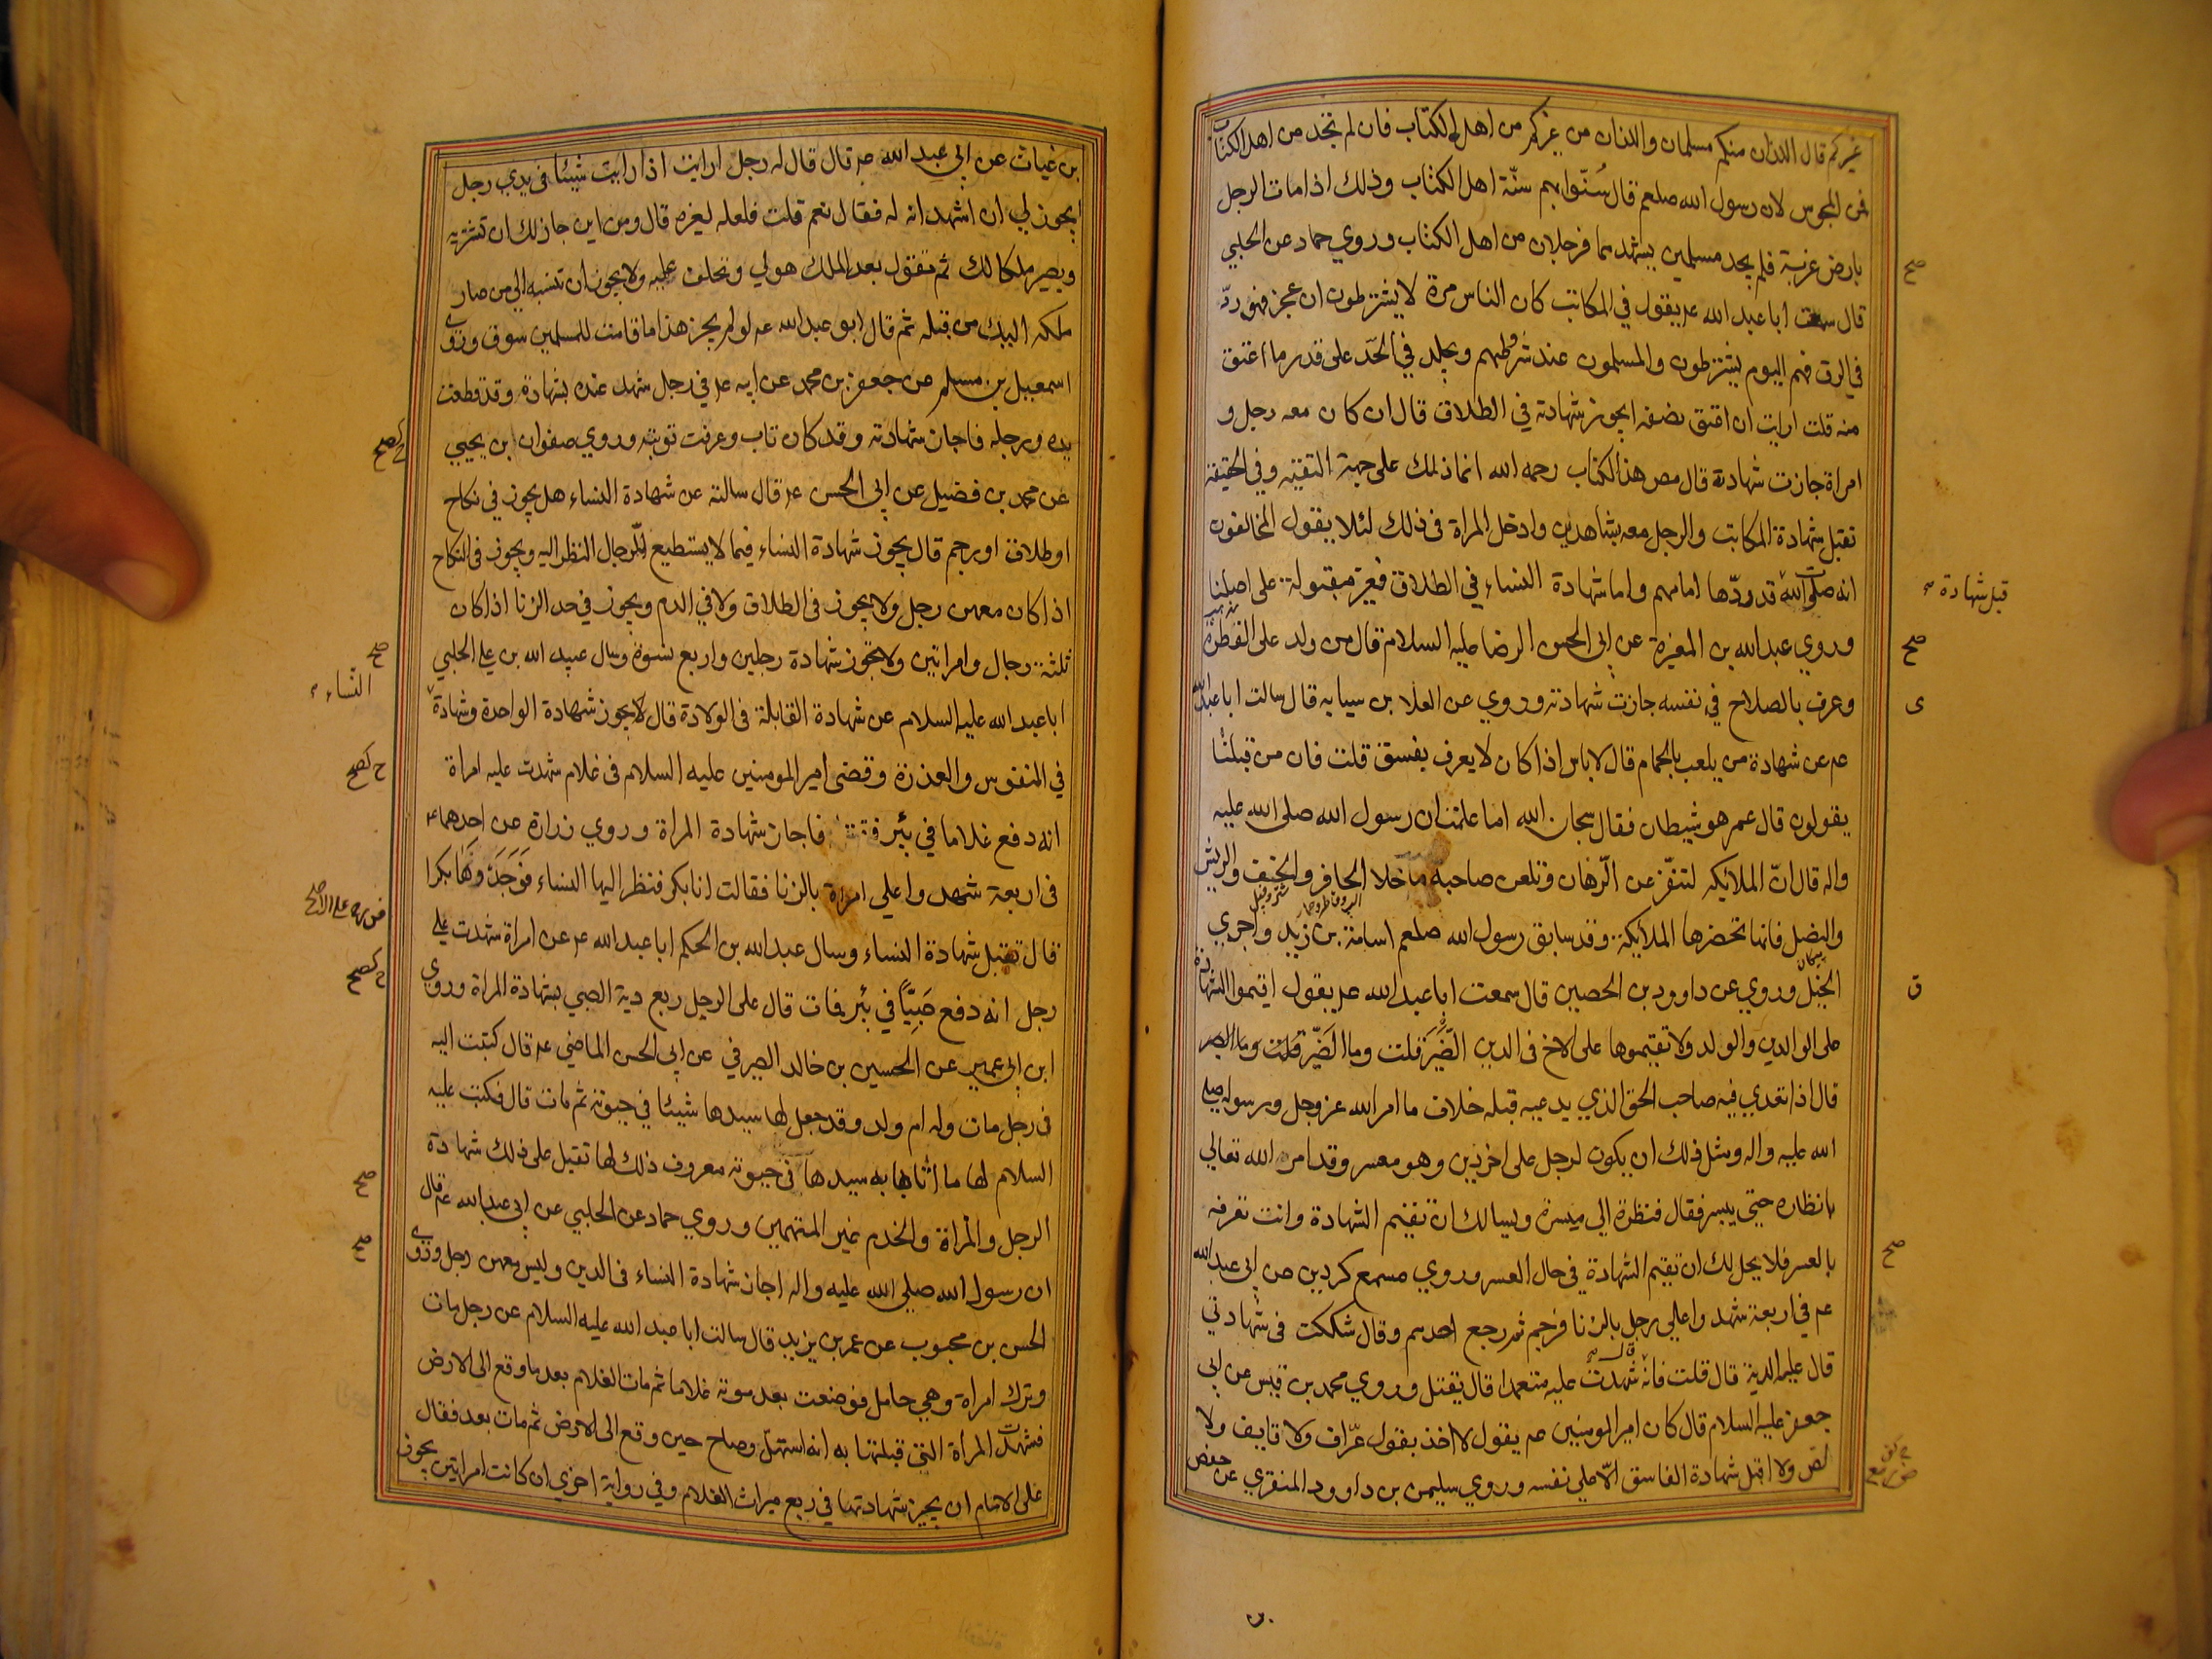 غيركم قال اللذان منكم مسلمان واللذان من غيركم من اهل الكتاب فان لم تجد من اهل الكتاب
فمن المجوس لان رسول الله صلعم قال سُنّوا بهم سنّة اهل الكتاب وذلك اذا مات الرجل
بارض غربة فلم يجد مسلمين يشهدهما فرجلان من اهل الكتاب وروي حماد عن الحلبي
صح
قال سمعت ابا عبد الله عم يقول في المكاتب كان الناس مرة لا يشترطون ان عجز فهو ردّ
في الرق فهم اليوم يشترطون والمسلمون عند شروطهم ويجلد في الحَدّ على قدر ما اعتق
منه قلت ارايت ان اعتق نصفه ايجوز شهادته في الطلاق قال ان كان معه رجل و
امراة جازت شهادته قال مص هذا الكتاب رحمه الله انما ذلك على جهة التقيّه وفي الحقيقة
تقبل شهادة المكاتب والرجل معه بشاهدين وادخل المراة في ذلك لئلا يقول المخالفون
قبل شهادة
انه صلوات الله قد ردّها امامهم واما شهادة النساء في الطلاق فغير مقبولة على اصلنا
وروي عبد الله بن المغيرة عن ابي الحسن الرضا عليه السلام قال من ولد على الفطرة
صح
وعرف بالصلاح في نفسه جازت شهادته وروي عن العلا بن سيابه قال سالت ابا عبد الله
ى
عم عن شهادة من يلعب بالحمام قال لا باس اذا كان لا يعرف بفسق قلت فان من قبلنا
يقولون قال عمر هو شيطان فقال سبحان الله اما علمت ان رسول الله صلى الله عليه
واله قال انّ الملائكه لتنفر عن الرّهان وتلعن صاحبه ما خلا الحافر والخف والريش
والنصل فانها تحضرها الملائكة وقد سابق رسول الله صلعم اسامة بن زيد واجري
پيكان
الخيل وروي عن داوود بن الحصين قال سمعت ابا عبد الله عم يقول اقيموا الشهادة
ق
على الوالدين والولد ولا تقيموها على الاخ في الدين الضَّيْر قلت وما الضّير
قال اذا تعدي فيه صاحب الحق الذي يدعيه قبله خلاف ما امر الله عز وجل ورسوله صلى
الله عليه واله ومثل ذلك ان يكون لرجل على اخر دين وهو معسر وقد امر الله تعالي
بانظاره حتى ييسر فقال فنظرة الي ميسرة ويسالك ان تقيم الشهادة وانت تعرفه
بالعسر فلا يحل لك ان تقيم الشهادة في حال العسر وروي مسمع كردين عن ابي عبد الله
صح
عم في اربعة شهدوا على رجل بالزنا فرجم ثم رجع احدهم وقال شككت في شهادتي
قال عليه الدية قال قلت فانّه شهدت عليه متعمدا قال يقتل وروي محمد بن قيس عن ابي
جعفر عليه السلام قال كان امير المومنين عم يقول لا اخذ بقول عرّاف ولا قايف ولا
لصّ ولا اقبل شهادة الفاسق الّا على نفسه وروي سليمن بن داوود المنقري عن حفص
بن غياث عن ابي عبد الله عم قال قال له رجل ارايت اذا رايت شيئا في يدي رجل
ايجوز لي ان اشهد انه له فقال نعم قلت فلعله لغيره قال ومن اين جاز لك ان تشتريه
ويصير ملكا لك ثم تقول بعد الملك هو لي وتحلف عليه ولا يجوز ان تنسبه الى من صار
ملكه اليك من قبله ثم قال ابو عبد الله عم لو لم يجز هذا ما قامت للمسلمين سوق وروى
اسمعيل بن مسلم عن جعفر بن محمد عن ابيه عم في رجل شهد عنده بشهادة وقد قطعت
يده ورجله فاجاز شهادته وقد كان تاب وعرفت توبته وروي صفوان بن يحيى
عن محمد بن فضيل عن ابي الحسن عم قال سالته عن شهادة النساء هل يجوز في نكاح
او طلاق او رجم قال يجوز شهادة النساء فيما لا يستطيع الرّجال النظر اليه ويجوز في النكاح
اذا كان معهن رجل ولا يجوز في الطلاق ولا في الدم ويجوز في حد الزنا اذا كان
ثلثة رجال وامراتين ولا يجوز شهادة رجلين واربع نسوة وسال عبيد الله بن علي الحلبي
صح
النساء
ابا عبد الله عليه السلام عن شهادة القابلة في الولادة قال يجوز شهادة الواحدة وشهادة
في المنفوس والعذرة وقضى امير المومنين عليه السلام في غلام شهدت عليه امراة
انه دفع غلاما في بئر فقتله فاجاز شهادة المراة وروي زرارة عن احدهما عم
في اربعة شهدوا على امراة بالزنا فقالت انا بكر فنظر اليها النساء فَوَجَدْنَهَا بكرا
قال تقبل شهادة النساء وسال عبد الله بن الحكم ابا عبد الله عم عن امراة شهدت على
رجل انه دفع صَبِيًّا في بئر فمات قال على الرجل ربع دية الصبي بشهادة المراة وروى
ابن ابي عمير عن الحسين بن خالد الصيرفي عن ابي الحسن الماضي عم قال كتبت اليه
في رجل مات وله ام ولد وقد جعل لها سيدها شيئا في حيوته ثم مات قال فكتب عليه
السلام لها ما اثابها به سيدها في حيوته معروف ذلك لها تقبل على ذلك شهادة
الرجل والمراة والخدم غير المتهمين وروي حماد عن الحلبي عن ابي عبد الله عم قال
صح
ان رسول الله صلى الله عليه واله اجاز شهادة النساء في الدين وليس معهن رجل وروى
صح
الحسن بن محبوب عن عمر بن يزيد قال سالت ابا عبد الله عليه السلام عن رجل مات
وترك امراة وهي حامل فوضعت بعد موته غلاما ثم مات الغلام بعد ما وقع الى الارض
فشهدت المراة التي قبلتها به انه استهلّ وصاح حين وقع الى الارض ثم مات بعد فقال
على الامام ان يجيز شهادتها في ربع ميراث الغلام وفي رواية اخري ان كانت امراتين يجوز